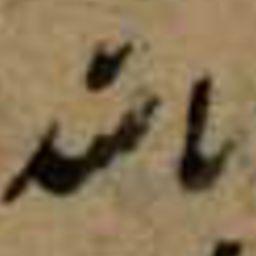 باشد